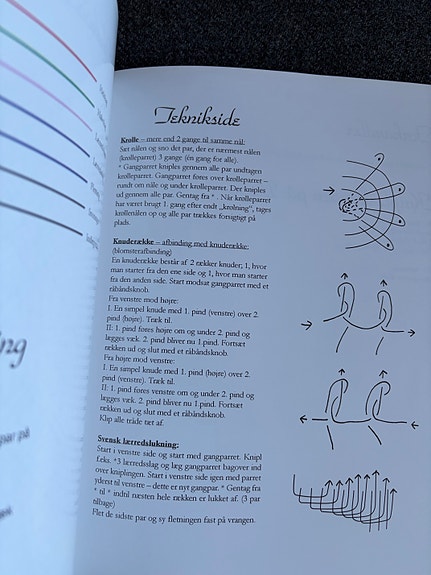 Teknikside
Krolle – mere end 2 gange til samme nål:
Sæt nålen og sno det par, der er nærmest nålen
(krolleparret) 3 gange (én gang for alle).
* Gangparret kniples gennem alle par undtagen
krolleparret. Gangparret føres over krolleparret –
rundt om nåle og under krolleparret. Der kniples
ud gennem alle par. Gentag fra * . Når krolleparret
har været brugt 1. gang efter endt „krolning", tages
krollenålen op og alle par trækkes forsigtigt på
plads.
Knuderække – afbinding med knuderække:
(blomsterafbinding)
En knuderække består af 2 rækker knuder; 1, hvor
man starter fra den ene side og 1, hvor man starter
fra den anden side. Start modsat gangparret med et
råbåndsknob.
Fra venstre mod højre:
I. En simpel knude med 1. pind (venstre) over 2.
pind (højre). Træk til.
II: 1. pind føres højre om og under 2. pind og
lægges væk. 2. pind bliver nu 1.pind. Fortsæt
rækken ud og slut med et råbåndsknob.
Fra højre mod venstre:
I. En simpel knude med 1. pind (højre) over 2.
pind (venstre). Træk til.
II: 1. pind føres venstre om og under 2. pind og
lægges væk. 2. pind bliver nu 1.pind. Fortsæt
rækken ud og slut med et råbåndsknob.
Klip alle tråde tæt af.
Svensk lærredslukning:
Start i venstre side og start med gangparret. Knipl
f.eks. *3 lærredsslag og læg gangparret bagover ind
over kniplingen. Start i venstre side igen med parret
yderst til venstre – dette er nyt gangpar. * Gentag fra
* til * indtil næsten hele rækken er lukket af. (3 par
tilbage)
Flet de sidste par og sy fletningen fast på vrangen.